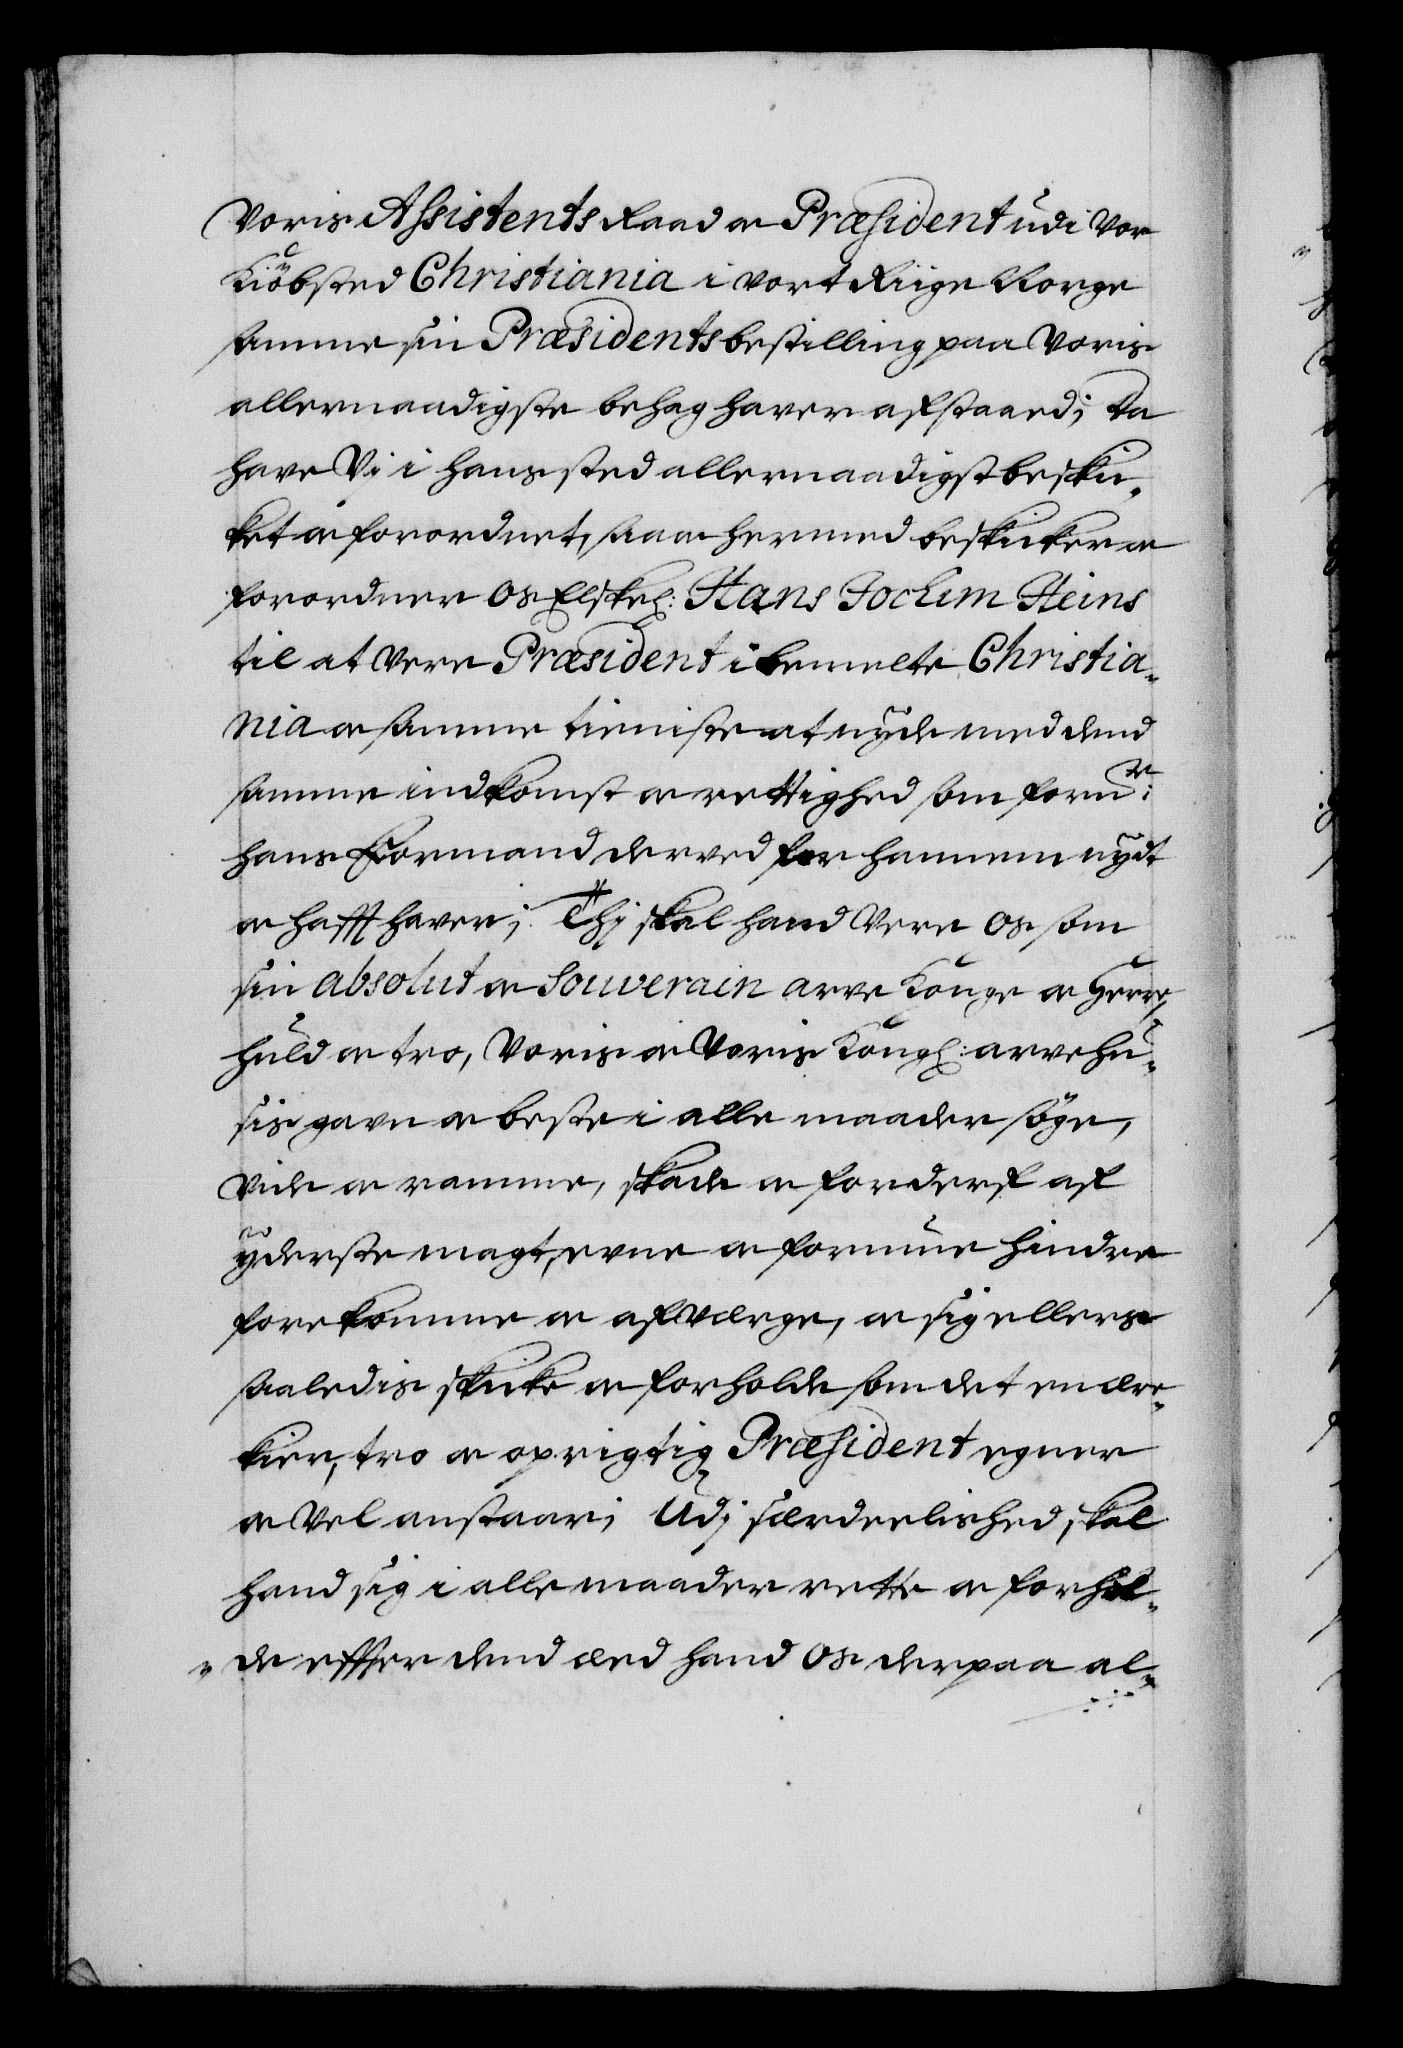 Voris Assistents Raad oc Præsident udi Vor
Kiöbsted Christiania i vort Riige Norge
samme sin Præsidents bestilling paa Voris
allernaadigste behag haver afstaaed; Da
have Vj i hans sted allernaadigst beski„
ket oc forordnet, saa oc hermed beskicker oc
forordner Os Elskel: Hans Jochim Heins
til at Vere Præsident i bemelte Christia„
nia oc samme tieniste at nyde med dend
samme indkomst oc rettighed som foru:
hans Formand derved for hannem nydt
oc hafft haver; Thj skal hand Vere Os som
sin absolut oc Souverain arve Konge oc Herre,
huld oc tro, Voris oc Voris Kongl: arvehu„
sis gavn oc beste i alle maader søge,
vide oc ramme, skade oc forderf af
yderste magt, evne oc formue hindre
forekomme oc afværge, oc sig ellers
saaledis skicke oc forholde som det en ære„
kier, tro oc oprigtig Præsident egner
oc Vel anstaar; Udj særdeelished skal
hand sig i alle maader rette oc forhol„
„de effter dend æed hand Os derpaa al„